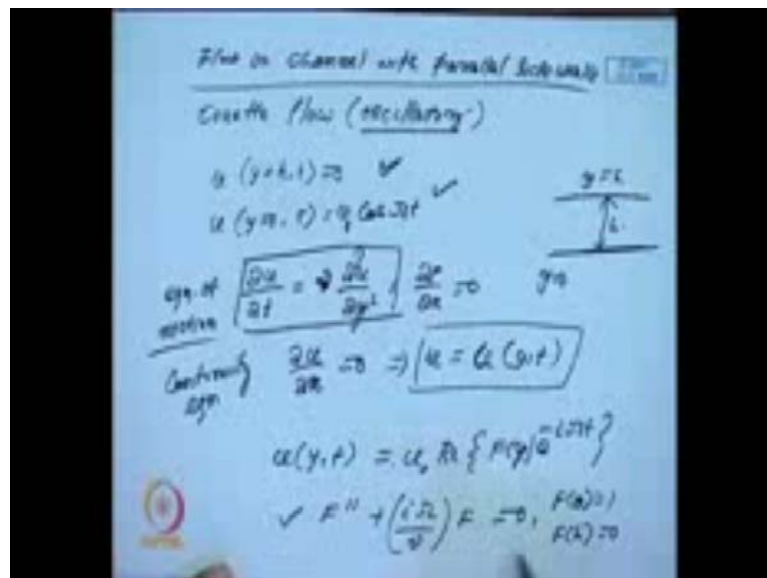 Flow in channel with parallel side walls
Couette flow (oscillatory)
u (y=h, t) = 0 ✓
u (y=0, t) = u₀ Cos Ωt ✓
y=h
h
y=0
eqn. of motion ∂u/∂t = ν ∂²u/∂y², ∂p/∂x = 0
Continuity eqn ∂u/∂x = 0 ⇒ u = u(y,t)
u(y,t) = u₀ Re { F(y) e^{-iΩt} }
✓ F'' + (iΩ/ν) F = 0, F(0)=1
F(h)=0